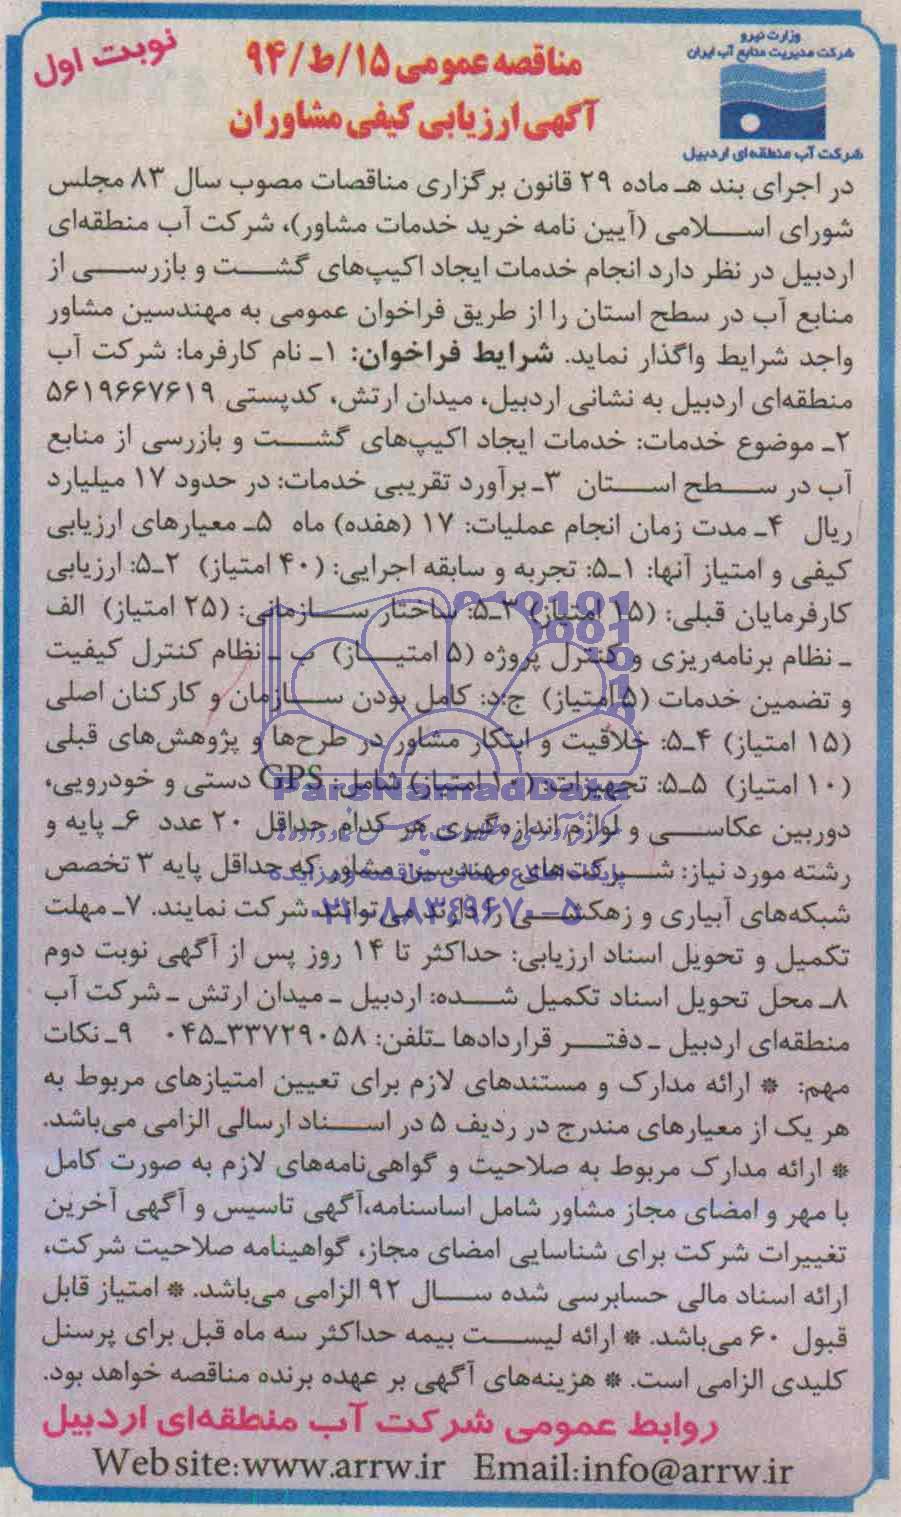 نوبت اول
وزارت نیرو
شرکت مدیریت منابع آب ایران
شرکت آب منطقه‌ای اردبیل
مناقصه عمومی ۱۵/ط/۹۴
آگهی ارزیابی کیفی مشاوران
در اجرای بند هـ ماده ۲۹ قانون برگزاری مناقصات مصوب سال ۸۳ مجلس
شورای اسلامی (آیین نامه خرید خدمات مشاور)، شرکت آب منطقه‌ای
اردبیل در نظر دارد انجام خدمات ایجاد اکیپ‌های گشت و بازرسی از
منابع آب در سطح استان را از طریق فراخوان عمومی به مهندسین مشاور
واجد شرایط واگذار نماید. شرایط فراخوان: ۱ـ نام کارفرما: شرکت آب
منطقه‌ای اردبیل به نشانی اردبیل، میدان ارتش، کدپستی ۵۶۱۹۶۶۷۶۱۹
۲ـ موضوع خدمات: خدمات ایجاد اکیپ‌های گشت و بازرسی از منابع
آب در سطح استان ۳ـ برآورد تقریبی خدمات: در حدود ۱۷ میلیارد
ریال ۴ـ مدت زمان انجام عملیات: ۱۷ (هفده) ماه ۵ـ معیارهای ارزیابی
کیفی و امتیاز آنها: ۱ـ۵: تجربه و سابقه اجرایی: (۴۰ امتیاز) ۲ـ۵: ارزیابی
کارفرمایان قبلی: (۱۵ امتیاز) ۳ـ۵: ساختار سازمانی: (۲۵ امتیاز) الف
ـ نظام برنامه‌ریزی و کنترل پروژه (۵ امتیاز) ب ـ نظام کنترل کیفیت
و تضمین خدمات (۵ امتیاز) ج:د: کامل بودن سازمان و کارکنان اصلی
(۱۵ امتیاز) ۴ـ۵: خلاقیت و ابتکار مشاور در طرح‌ها و پژوهش‌های قبلی
(۱۰ امتیاز) ۵ـ۵: تجهیزات: (۱۰ امتیاز) شامل: GPS دستی و خودرویی،
دوربین عکاسی و لوازم اندازه‌گیری هر کدام حداقل ۲۰ عدد ۶ـ پایه و
رشته مورد نیاز: شرکت‌های مهندسین مشاور که حداقل پایه ۳ تخصص
شبکه‌های آبیاری و زهکشی را دارند می‌توانند شرکت نمایند. ۷ـ مهلت
تکمیل و تحویل اسناد ارزیابی: حداکثر تا ۱۴ روز پس از آگهی نوبت دوم
۸ـ محل تحویل اسناد تکمیل شده: اردبیل ـ میدان ارتش ـ شرکت آب
منطقه‌ای اردبیل ـ دفتر قراردادها ـتلفن: ۳۳۷۲۹۰۵۸ـ۰۴۵ ۹ـ نکات
مهم: * ارائه مدارک و مستندهای لازم برای تعیین امتیازهای مربوط به
هر یک از معیارهای مندرج در ردیف ۵ در اسناد ارسالی الزامی می‌باشد.
* ارائه مدارک مربوط به صلاحیت و گواهی‌نامه‌های لازم به صورت کامل
با مهر و امضای مجاز مشاور شامل اساسنامه،آگهی تاسیس و آگهی آخرین
تغییرات شرکت برای شناسایی امضای مجاز، گواهینامه صلاحیت شرکت،
ارائه اسناد مالی حسابرسی شده سال ۹۲ الزامی می‌باشد. * امتیاز قابل
قبول ۶۰ می‌باشد. * ارائه لیست بیمه حداکثر سه ماه قبل برای پرسنل
کلیدی الزامی است. * هزینه‌های آگهی بر عهده برنده مناقصه خواهد بود.
روابط عمومی شرکت آب منطقه‌ای اردبیل
Website:www.arrw.ir Email:info@arrw.ir
ParsNamadData
پایگاه اطلاع رسانی مناقصه و مزایده
۰۲۱-۸۸۳۴۹۶۷۰-۵